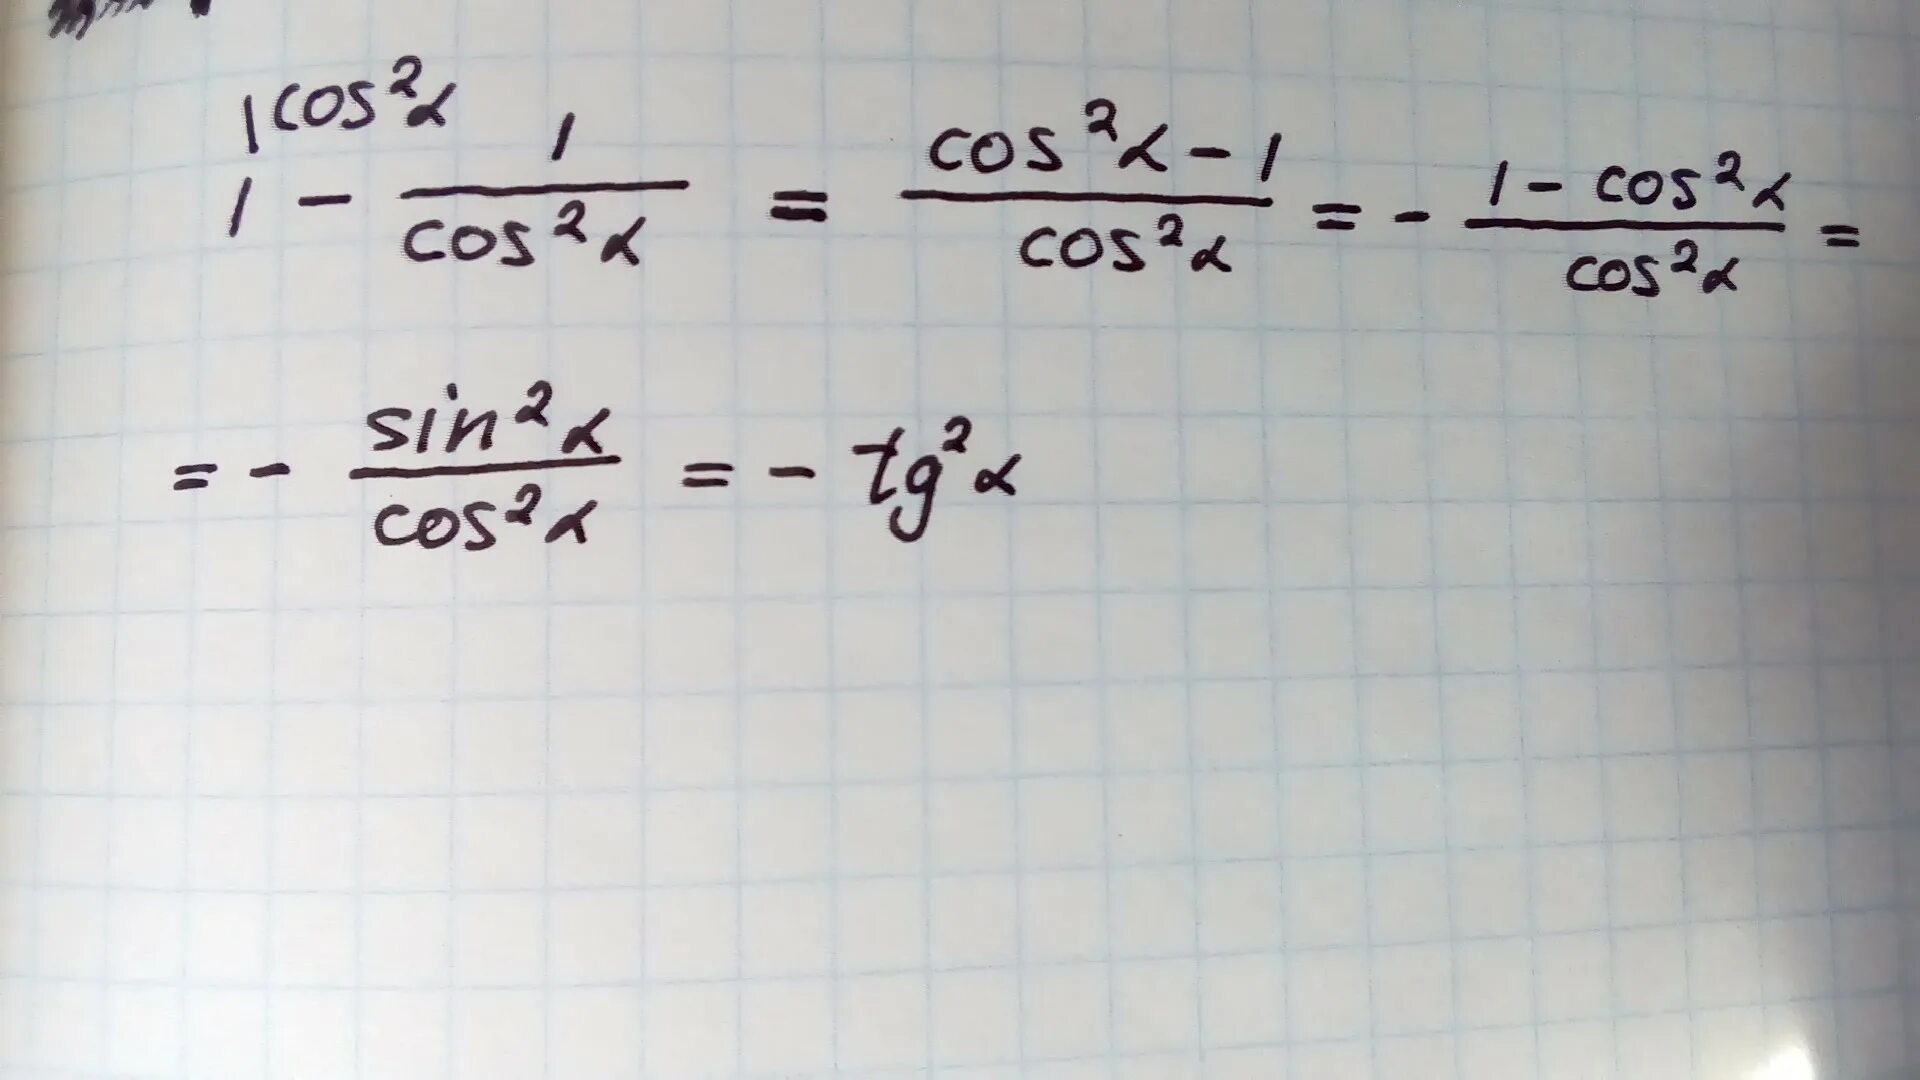 1 cos²α
1 - 1/cos²α = (cos²α - 1)/cos²α = - (1 - cos²α)/cos²α =
= - sin²α/cos²α = - tg²α